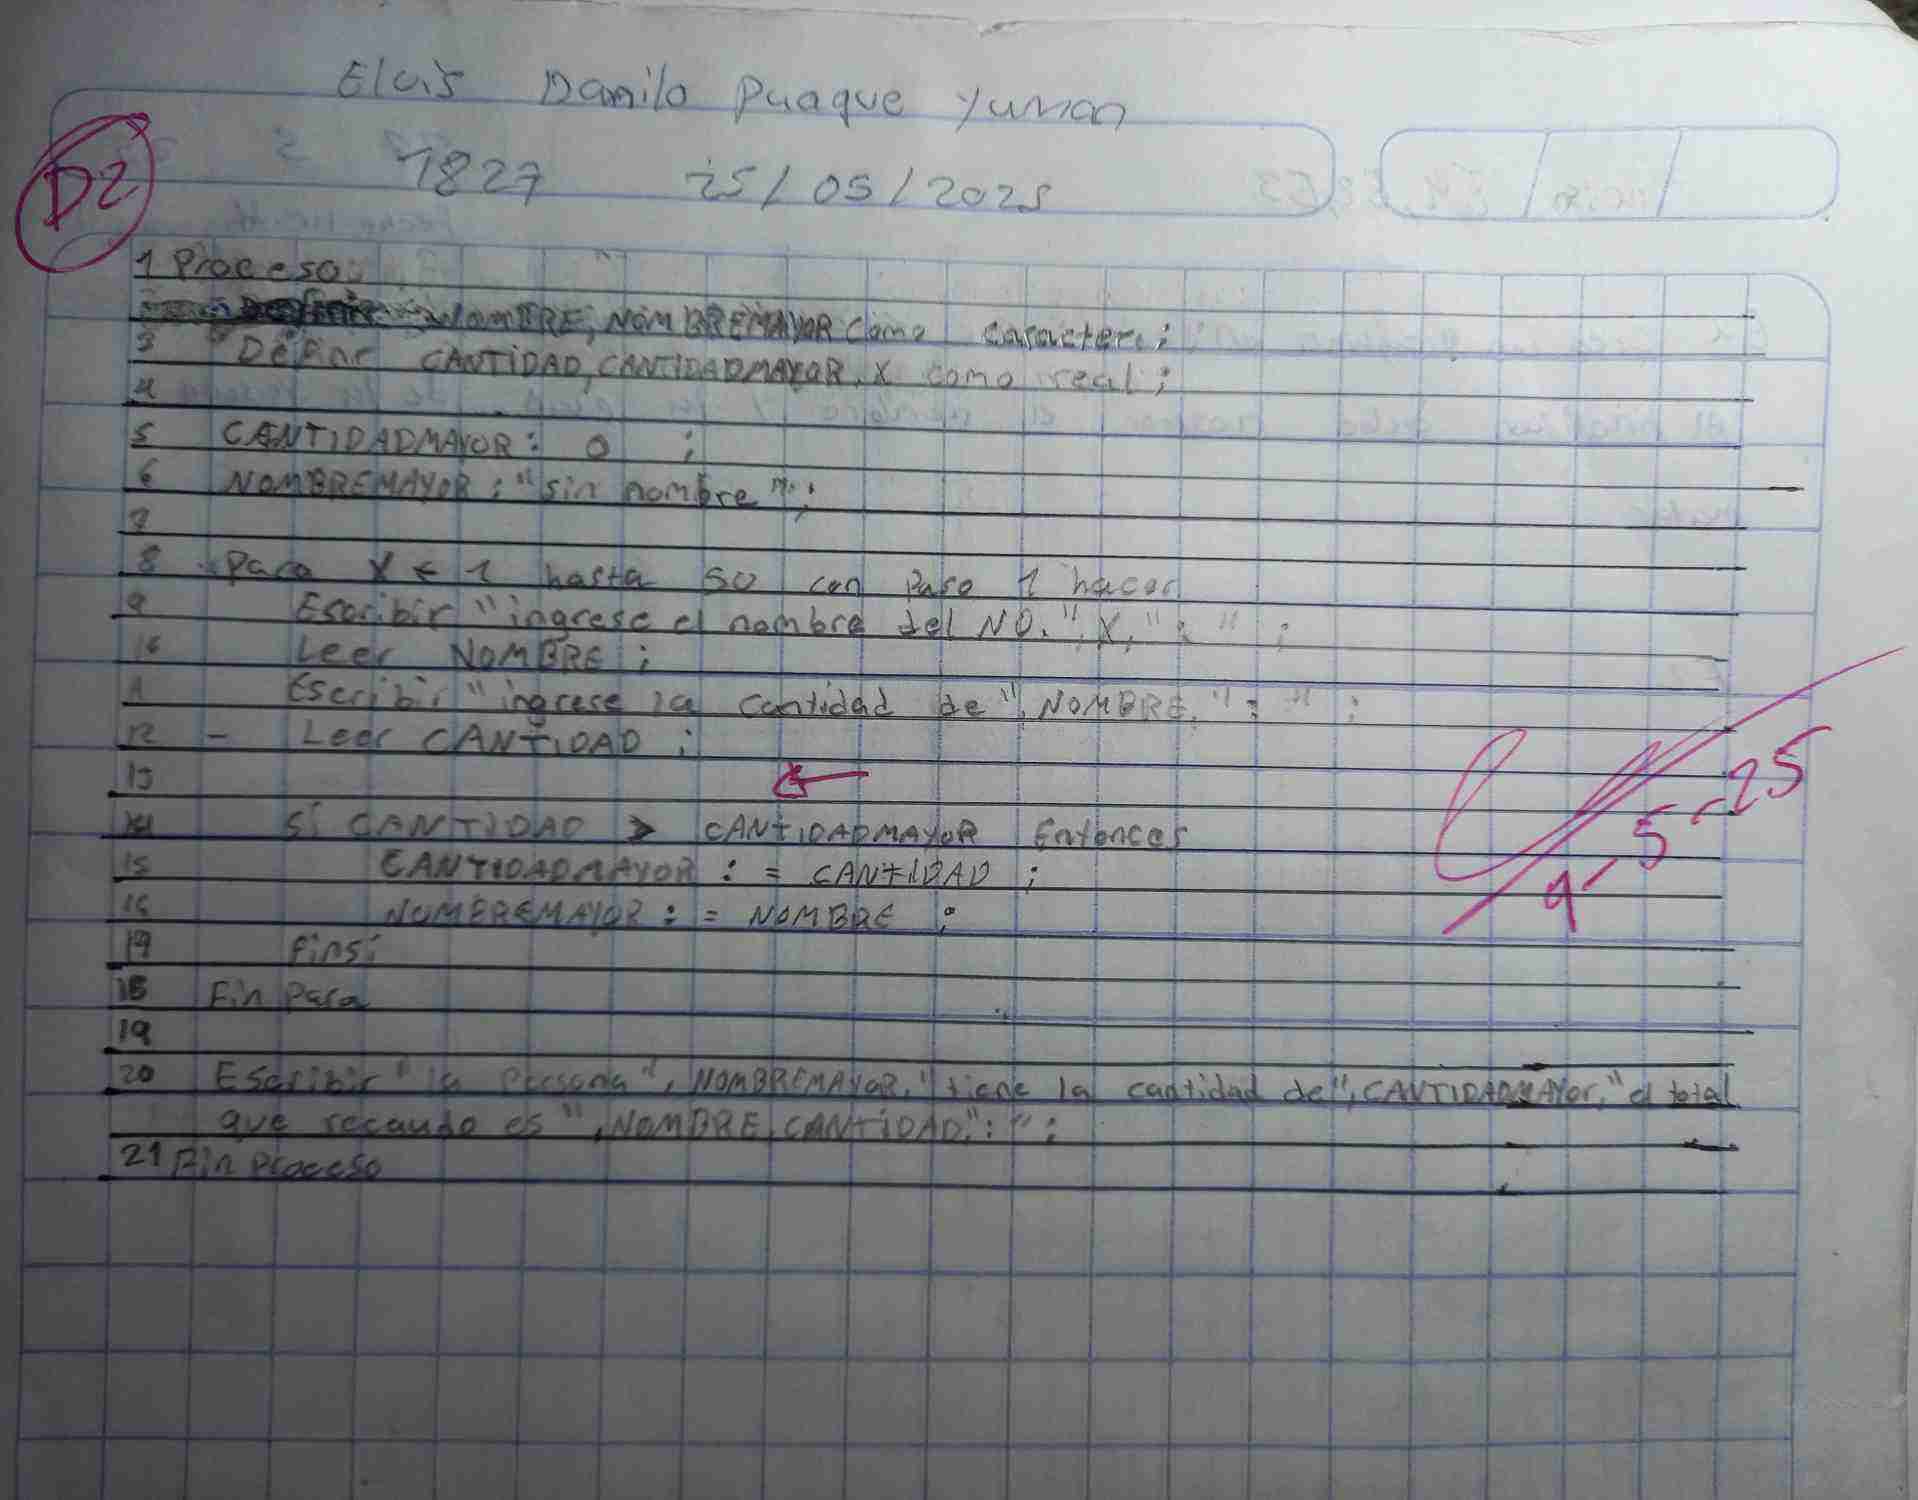 Elvis Danilo Puaque Yuman
D2
1827 25/05/2025
1 Proceso
NOMBRE, NOMBREMAYOR como caracter;
3 Definir CANTIDAD, CANTIDADMAYOR, X como real;
4
5 CANTIDADMAYOR: 0 ;
6 NOMBREMAYOR: "sin nombre";
7
8 Para X ← 1 hasta 50 con Paso 1 hacer
9 Escribir "ingrese el nombre del NO.", X, ": " ;
10 Leer NOMBRE ;
11 Escribir "ingrese la cantidad de", NOMBRE, " : " ;
12 - Leer CANTIDAD ;
13
14 Si CANTIDAD > CANTIDADMAYOR Entonces
15 CANTIDADMAYOR : = CANTIDAD ;
16 NOMBREMAYOR : = NOMBRE ;
17 Finsi
18 Fin Para
19
20 Escribir "la Persona", NOMBREMAYOR, "tiene la cantidad de", CANTIDADMAYOR, "el total
que recaudo es", NOMBRE, CANTIDAD, ": " ;
21 Fin Proceso
9-5-25